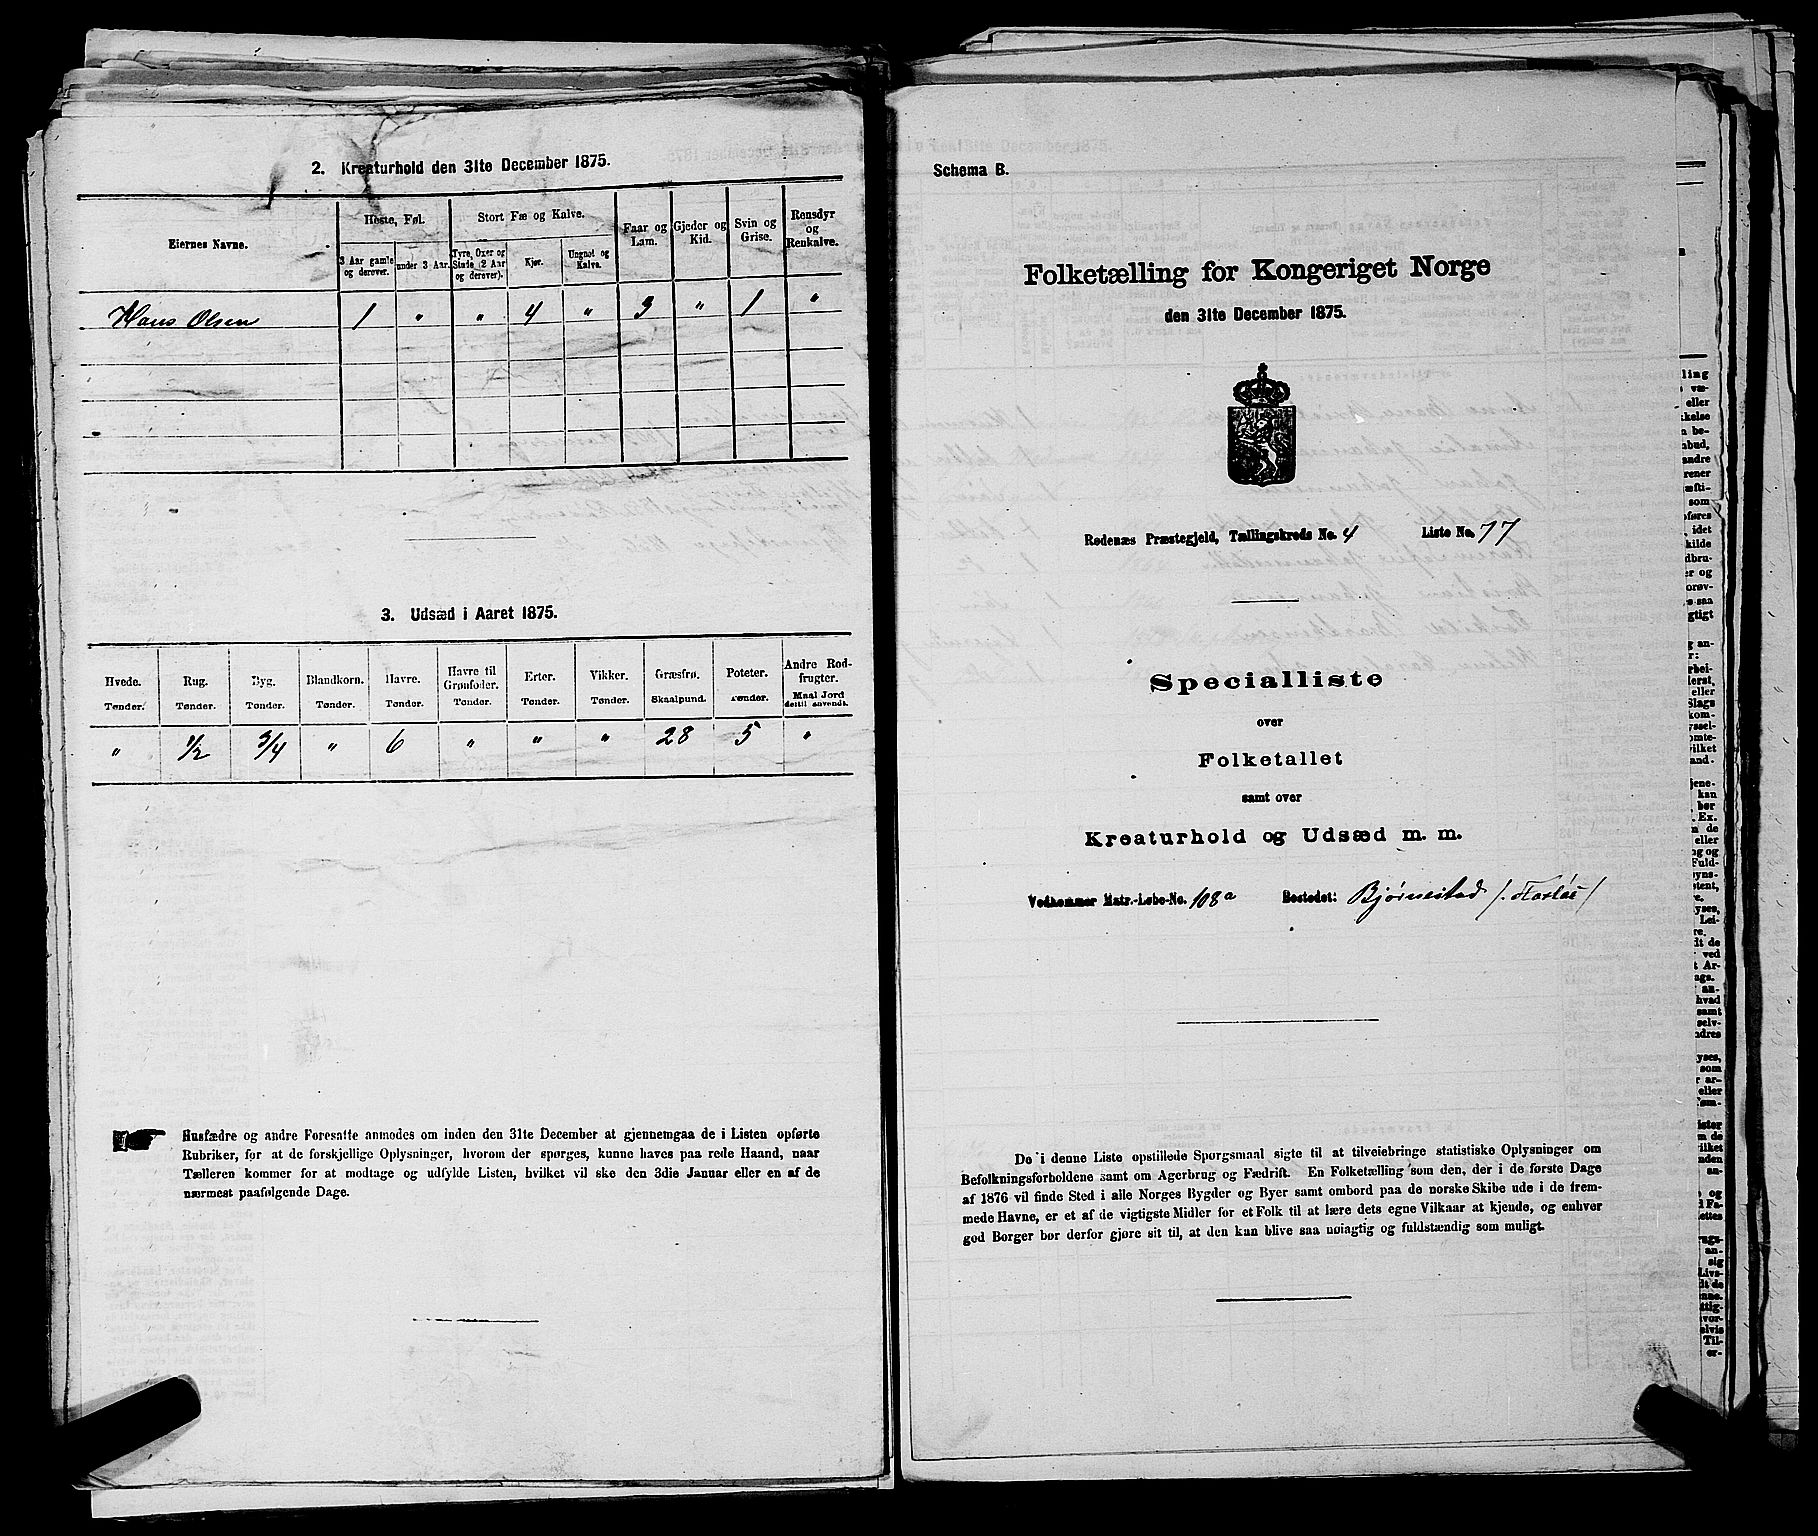 2. Kreaturhold den 31te December 1875.
Eiernes Navne.
Heste, Føl.
Stort Fæ og Kalve.
Faar og Lam.
Gjeder og Kid.
Svin og Grise.
Rensdyr og Renkalve.
3 Aar gamle og derover.
under 3 Aar.
Tyre, Oxer og Stude (2 Aar og derover).
Kjør.
Ungnøt og Kalve.
Hans Olsen 1 " " 4 " 3 " 1 "
3. Udsæd i Aaret 1875.
Hvede. Rug. Byg. Blandkorn. Havre. Havre til Grønfoder. Erter. Vikker. Græsfrø. Poteter. Andre Rodfrugter.
Tønder. Tønder. Tønder. Tønder. Tønder. Tønder. Tønder. Tønder. Skaalpund. Tønder. Maal Jord dertil anvendt.
" 1/2 3/4 " 6 " " " 28 5 "
Husfædre og andre Foresatte anmodes om inden den 31te December at gjennemgaa de i Listen opførte
Rubriker, før at de forskjellige Oplysninger, hvorom der spørges, kunne haves paa rede Haand, naar
Tælleren kommer for at modtage og udfylde Listen, hvilket vil ske den 3die Januar eller en af de
nærmest paafølgende Dage.
Schema B.
Folketælling for Kongeriget Norge
den 31te December 1875.
Rødenæs Præstegjeld, Tællingskreds No. 4 Liste No. 77
Specialliste
over
Folketallet
samt over
Kreaturhold og Udsæd m. m.
Vedkommer Matr.-Løbe-No. 108a Bostedet: Bjørnestad
De i denne Liste opstillede Spørgsmaal sigte til at tilveiebringe statistiske Oplysninger om
Befolkningsforholdene samt om Agerbrug og Fædrift. En Folketælling som den, der i de første Dage
af 1876 vil finde Sted i alle Norges Bygder og Byer samt ombord paa de norske Skibe ude i de frem-
mede Havne, er et af de vigtigste Midler for et Folk til at lære dets egne Vilkaar at kjende, og enhver
god Borger bør derfor gjøre sit til, at den kan blive saa nøiagtig og fuldstændig som muligt.